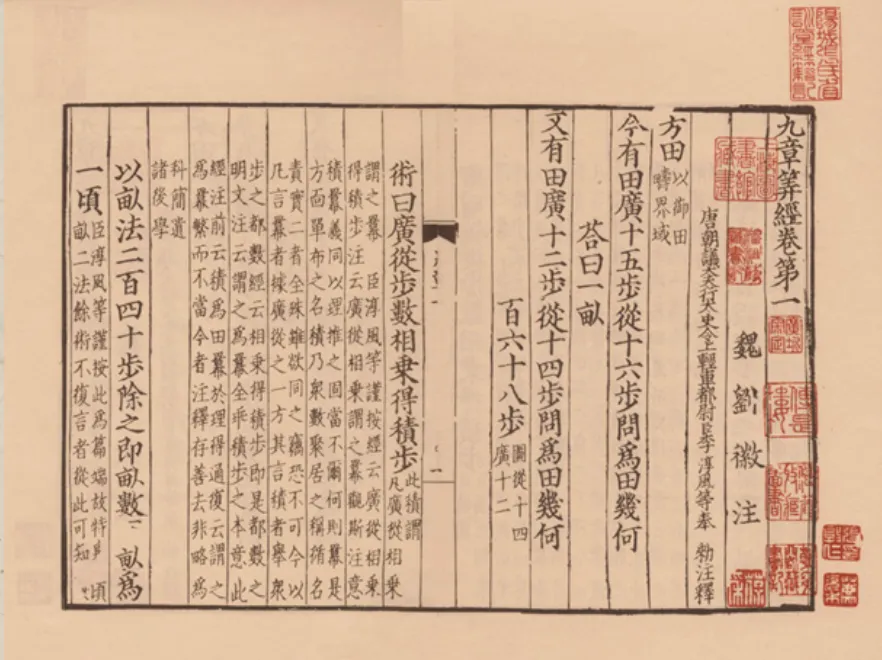 九章筭經卷第一
魏劉徽注
唐朝議大夫行太史令上輕車都尉臣李淳風等奉 勑注釋
方田
以御田
疇界域
今有田廣十五步從十六步問爲田幾何
荅曰一畝
又有田廣十二步從十四步問爲田幾何
百六十八步
圖從十四
廣十二
術曰廣從步數相乘得積步
此積謂
凡廣從相乘
謂之羃 臣淳風等謹按經云廣從相乘
得積步注云廣從相乘謂之羃觀斯注意
積羃義同以理推之固當不爾何則羃是
方面單布之名積乃衆數聚居之稱循名
責實二者全殊雖欲同之竊恐不可今以
凡言羃者據廣從之一方其言積者舉衆
步之都數經云相乘得積步即是都數之
明文注云謂之爲羃全乖積步之本意此
經注前云積爲田羃於理得通復云謂之
爲羃繁而不當今者注釋存善去非略爲
科簡遺
諸後學
以畝法二百四十步除之即畝數 畝爲
一頃
臣淳風等謹按此爲篇端故特 頃
畝二法餘術不復言者從此可知